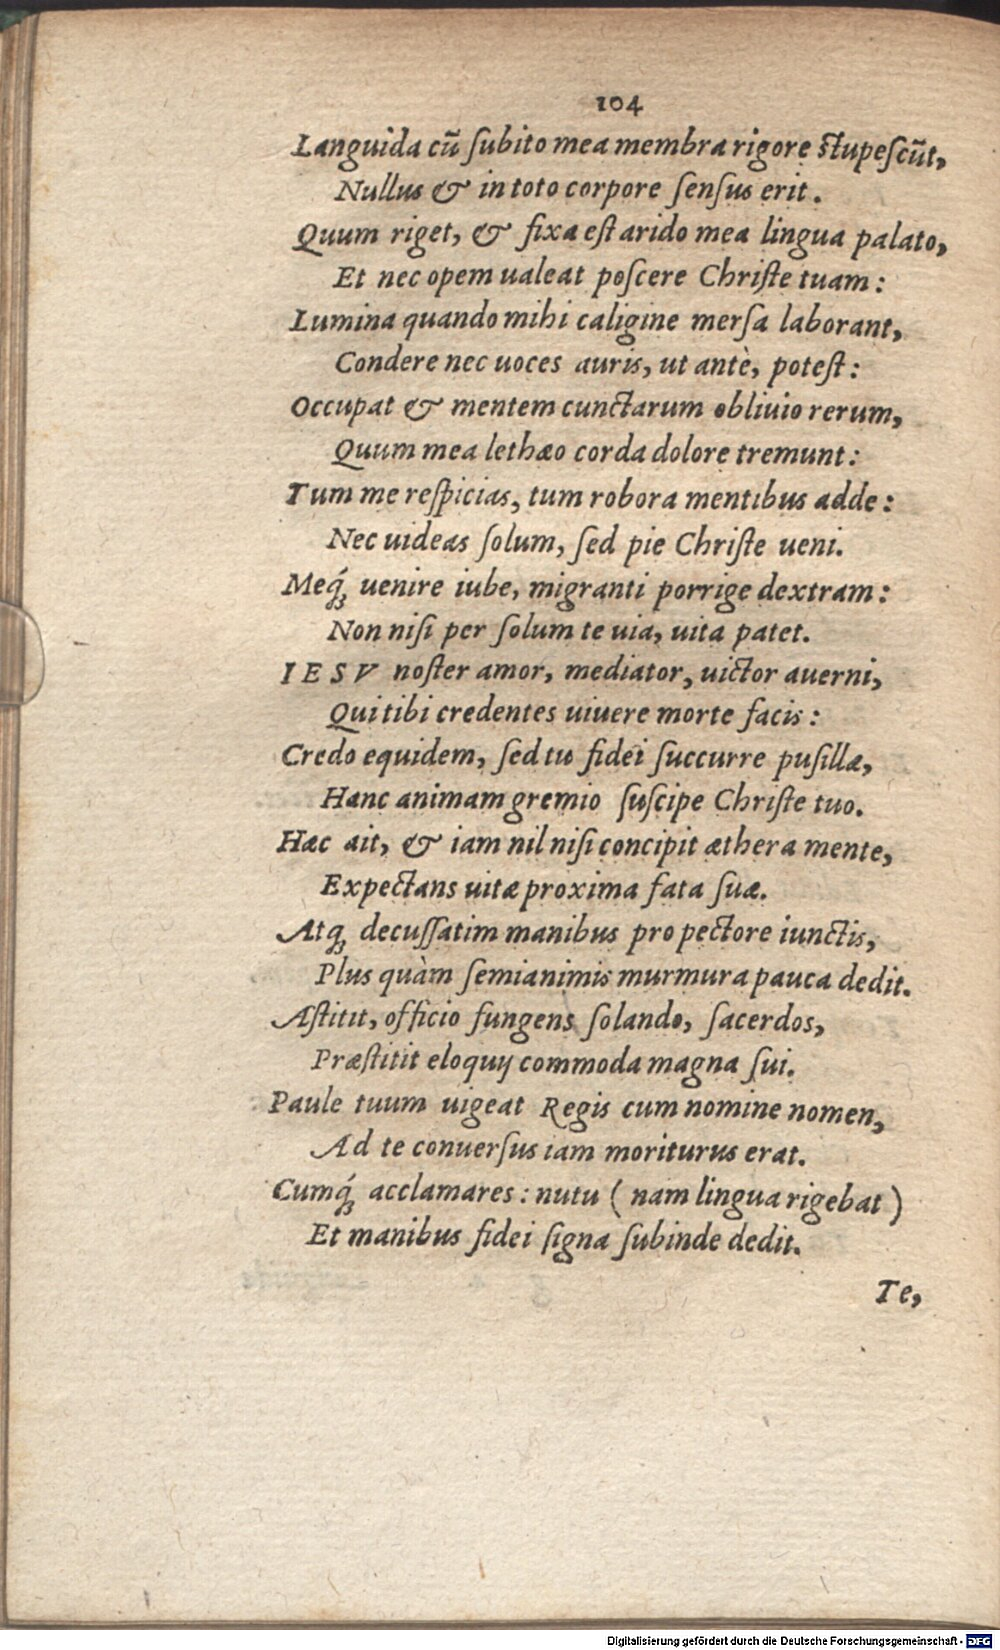 104
Languida cū ſubito mea membra rigore ſtupeſcūt,
Nullus & in toto corpore ſenſus erit.
Quum riget, & fixa eſt arido mea lingua palato,
Et nec opem ualeat poſcere Chriſte tuam:
Lumina quando mihi caligine merſa laborant,
Condere nec uoces auris, ut antè, poteſt:
Occupat & mentem cunctarum obliuio rerum,
Quum mea lethæo corda dolore tremunt:
Tum me reſpicias, tum robora mentibus adde:
Nec uideas ſolum, ſed pie Chriſte ueni.
Meq́ꝫ uenire iube, migranti porrige dextram:
Non niſi per ſolum te uia, uita patet.
IESV noſter amor, mediator, uictor auerni,
Qui tibi credentes uiuere morte facis:
Credo equidem, ſed tu fidei ſuccurre puſillæ,
Hanc animam gremio ſuſcipe Chriſte tuo.
Hæc ait, & iam nil niſi concipit æthera mente,
Expectans uitæ proxima fata ſuæ.
Atqꝫ decuſſatim manibus pro pectore iunctis,
Plus quàm ſemianimis murmura pauca dedit.
Aſtitit, officio fungens ſolando, ſacerdos,
Præſtitit eloquij commoda magna ſui.
Paule tuum uigeat Regis cum nomine nomen,
Ad te conuerſus iam moriturus erat.
Cumq́ꝫ acclamares: nutu (nam lingua rigebat)
Et manibus fidei ſigna ſubinde dedit.
Te,
Digitalisierung gefördert durch die Deutsche Forschungsgemeinschaft - DFG